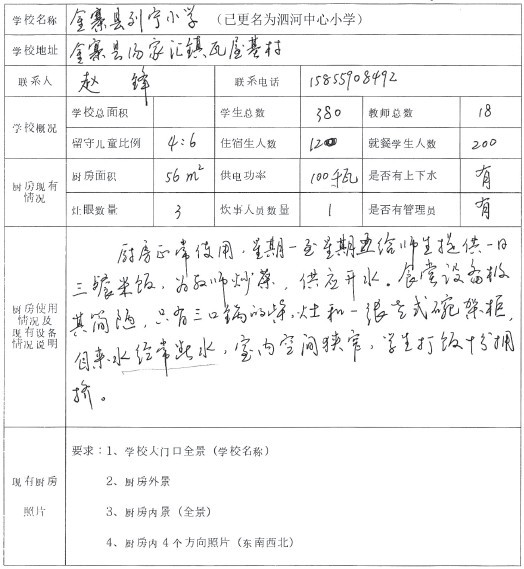 学校名称 金寨县列宁小学（已更名为泗河中心小学）
学校地址 金寨县汤家汇镇瓦屋基村
联系人 赵锋 联系电话 15855908492
学校概况 学校总面积 学生总数 380 教师总数 18
留守儿童比例 4:6 住宿生人数 120 就餐学生人数 200
厨房现有情况 厨房面积 56m² 供电功率 100千瓦 是否有上下水 有
灶眼数量 3 炊事人员数量 1 是否有管理员 有
厨房使用情况及现有设备情况说明
厨房正常使用，星期一至星期五给师生提供一日
三餐米饭，为教师炒菜，供应开水。食堂设备极
其简陋，只有三口锅的柴灶和一张老式碗架柜，
自来水经常断水，室内空间狭窄，学生打饭十分拥
挤。
现有厨房照片
要求：1、学校大门口全景（学校名称）
2、厨房外景
3、厨房内景（全景）
4、厨房内4个方向照片（东南西北）